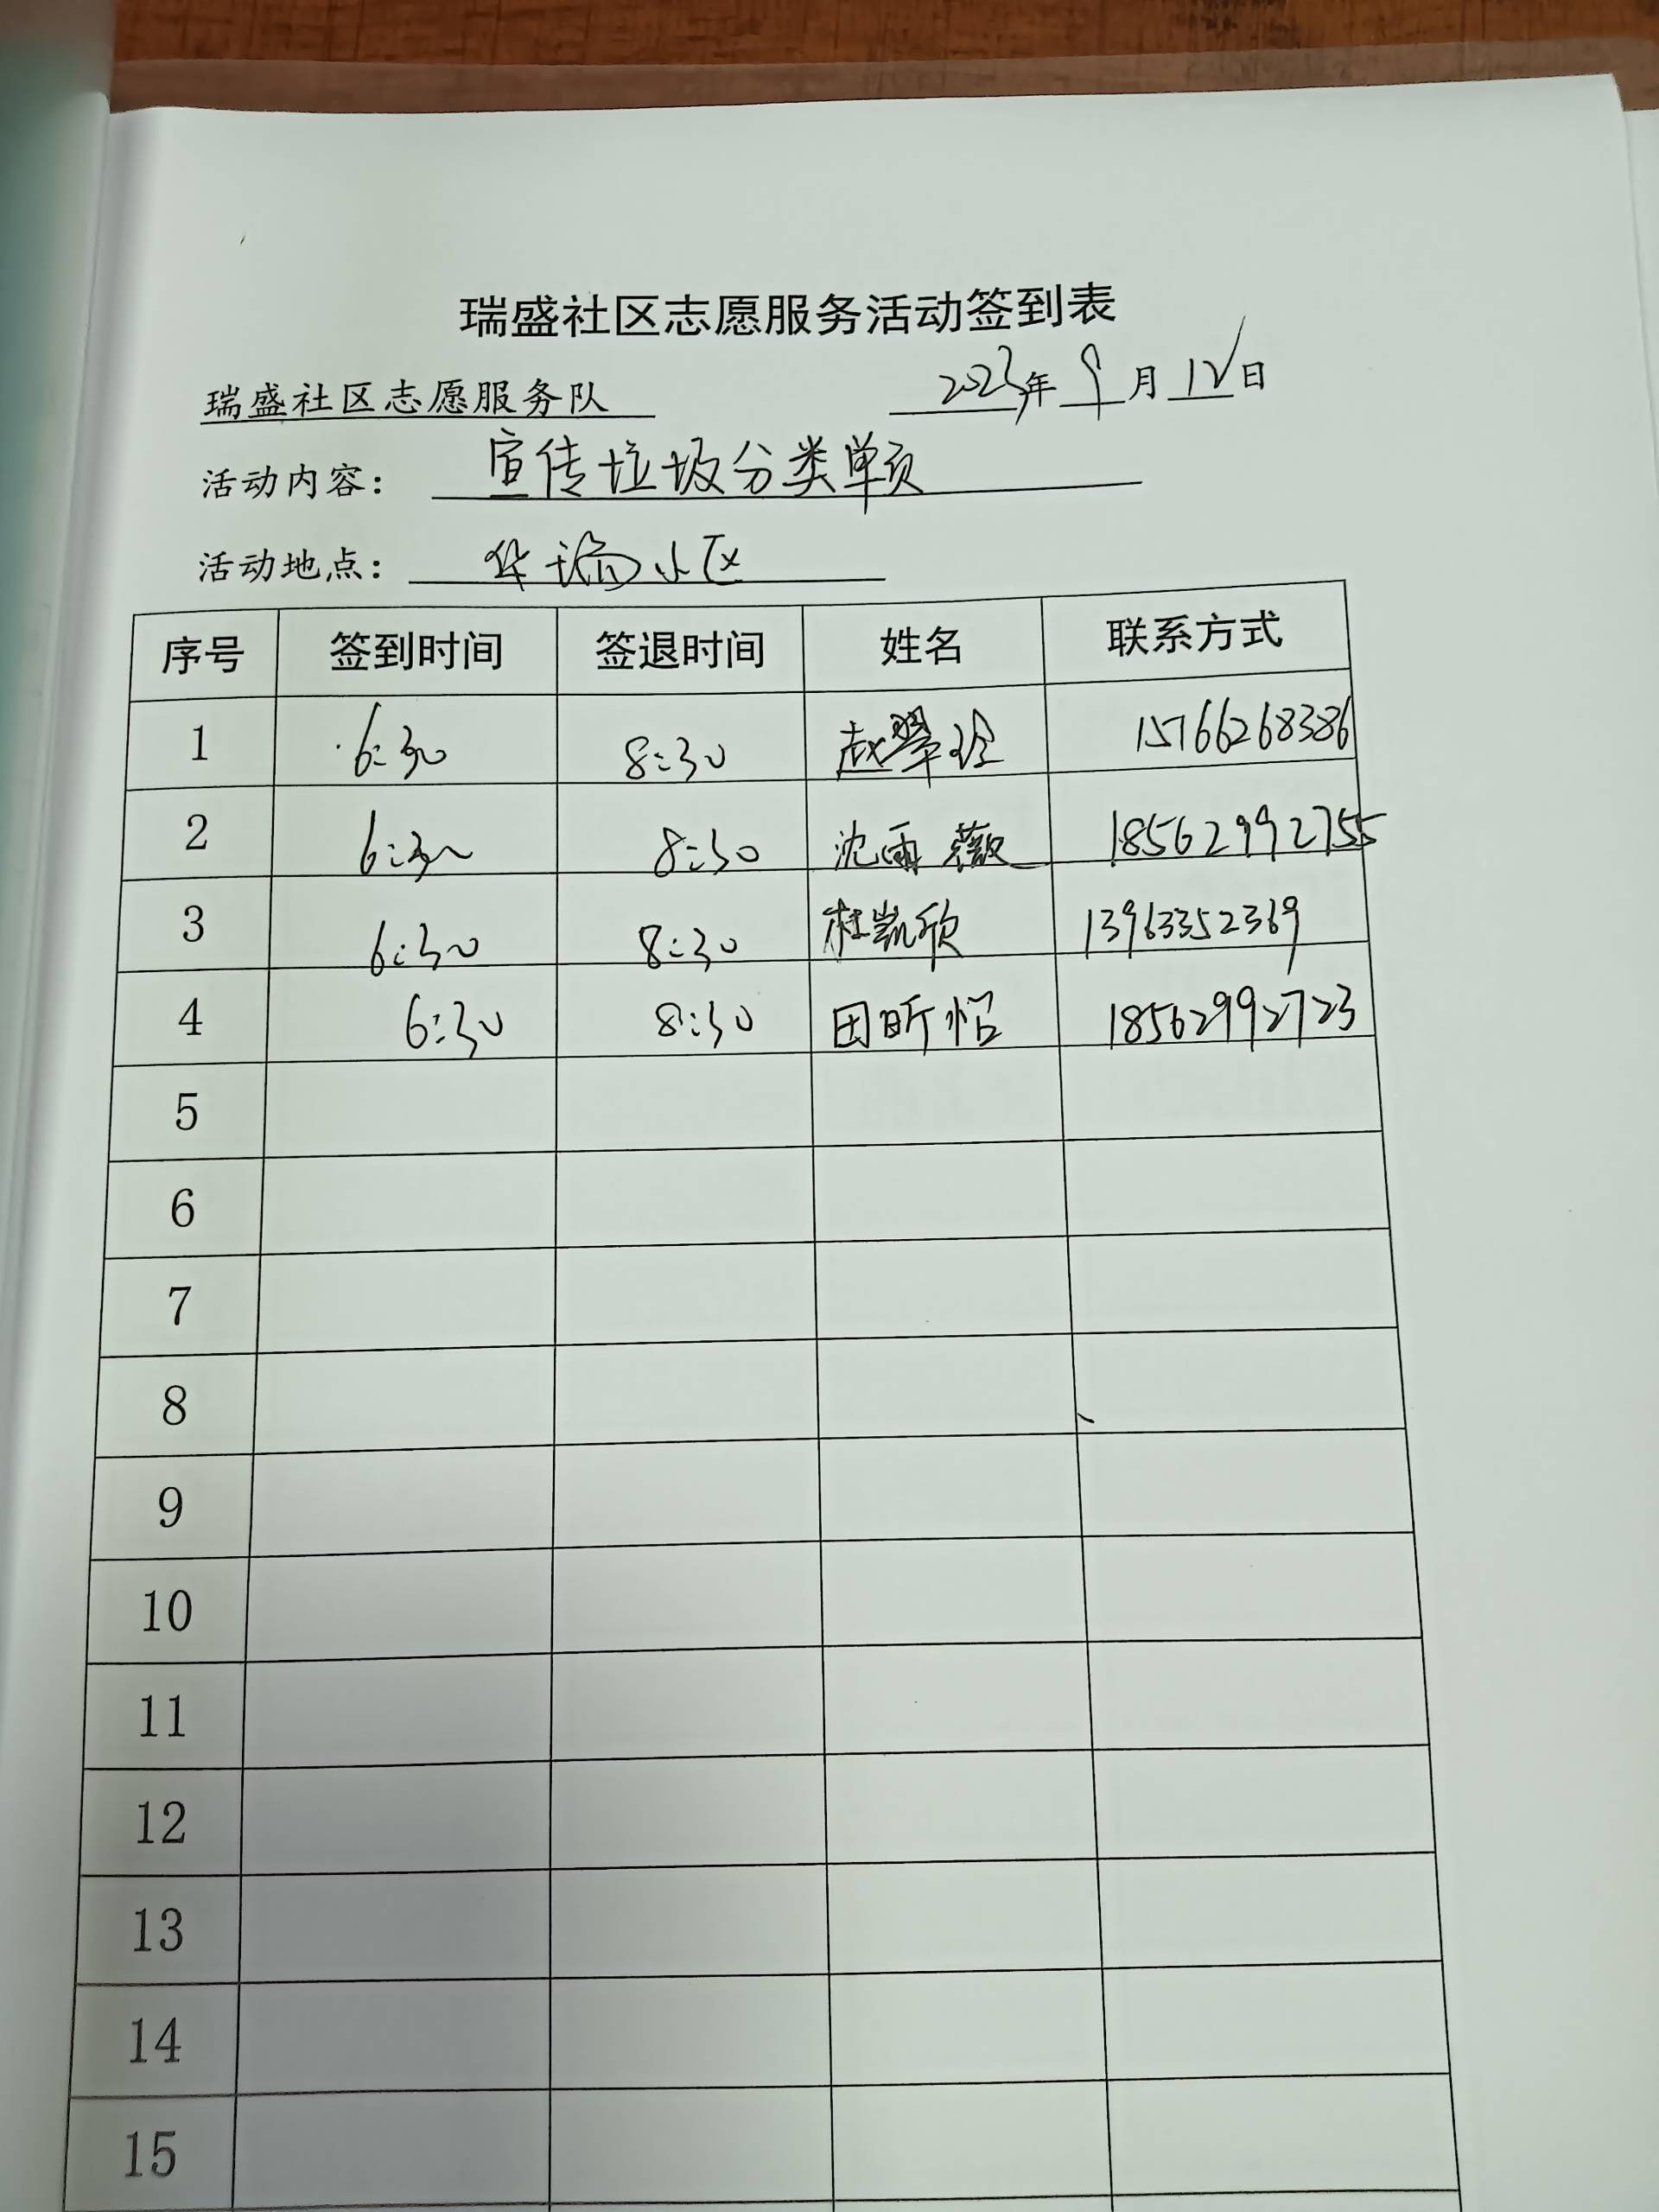 瑞盛社区志愿服务活动签到表
瑞盛社区志愿服务队 2023年 9月 12日
活动内容: 宣传垃圾分类单页
活动地点: 华瑞小区
序号 签到时间 签退时间 姓名 联系方式
1 6:30 8:30 赵翠玲 15766268386
2 6:30 8:30 沈雨薇 18562992755
3 6:30 8:30 杜凯欣 13963352369
4 6:30 8:30 田昕怡 18562992723
5
6
7
8
9
10
11
12
13
14
15